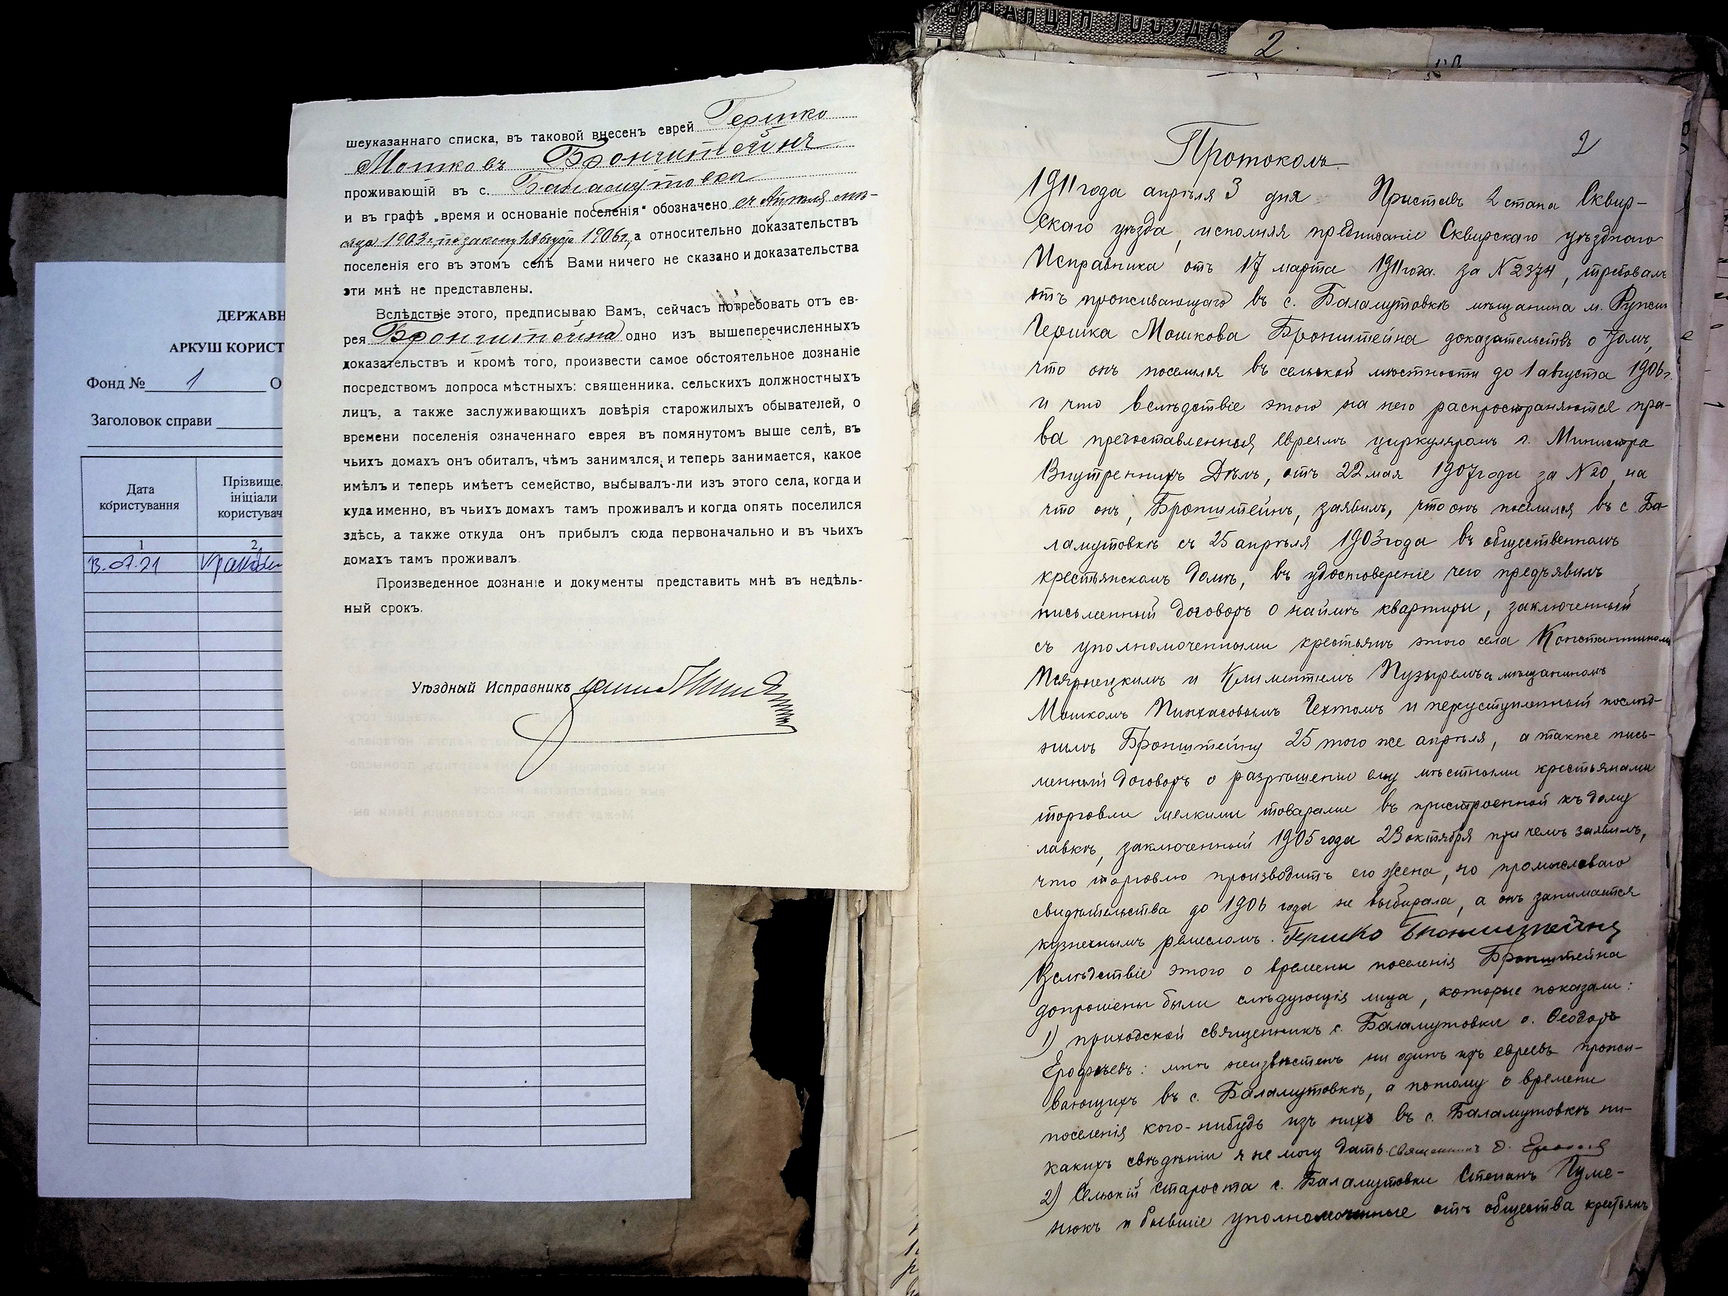 ДЕРЖАВН
АРКУШ КОРИСТ
Фонд № 1 О
Заголовок справи
Дата користування
Прізвище, ініціали користувач
1
2
13.07.21
шеуказаннаго списка, въ таковой внесенъ еврей Гершко
Мошковъ Бронштейнъ
проживающій въ с. Баламутовки
и въ графѣ „время и основаніе поселенія" обозначено съ Апреля мѣ-
сяца 1903 г. по законъ 1 Августа 1906 г, а относительно доказательствъ
поселенія его въ этомъ селѣ Вами ничего не сказано и доказательства
эти мнѣ не представлены.
Вслѣдствіе этого, предписываю Вамъ, сейчасъ потребовать отъ ев-
рея Бронштейна одно изъ вышеперечисленныхъ
доказательствъ и кромѣ того, произвести самое обстоятельное дознаніе
посредствомъ допроса мѣстныхъ: священника, сельскихъ должностныхъ
лицъ, а также заслуживающихъ довѣрія старожилыхъ обывателей, о
времени поселенія означеннаго еврея въ помянутомъ выше селѣ, въ
чьихъ домахъ онъ обиталъ, чѣмъ занимался, и теперь занимается, какое
имѣлъ и теперь имѣетъ семейство, выбывалъ-ли изъ этого села, когда и
куда именно, въ чьихъ домахъ тамъ проживалъ и когда опять поселился
здѣсь, а также откуда онъ прибылъ сюда первоначально и въ чьихъ
домахъ тамъ проживалъ.
Произведенное дознаніе и документы представить мнѣ въ недѣль-
ный срокъ.
Уѣздный Исправникъ
2
2
Протоколъ
1911 года апрѣля 3 дня Приставъ 2 стана Сквир-
скаго уѣзда, исполняя предписаніе Сквирскаго уѣзднаго
Исправника отъ 17 марта 1911 года за № 2374, требовалъ
отъ проживающаго въ с. Баламутовкѣ мѣщанина м. Ружин
Гершка Мошкова Бронштейна доказательствъ о томъ,
что онъ поселился въ сельской мѣстности до 1 августа 1906 г.
и что вслѣдствіе этого на него распространяются пра-
ва предоставленныя евреямъ циркуляромъ г. Министра
Внутреннихъ Дѣлъ, отъ 22 мая 1907 года за № 20, на
что онъ, Бронштейнъ, заявилъ, что онъ поселился въ с. Ба-
ламутовкѣ съ 25 апрѣля 1903 года въ общественномъ
крестьянскомъ домѣ, въ удостовѣреніе чего предъявилъ
письменный договоръ о наймѣ квартиры, заключенный
съ уполномоченными крестьянъ этого села Константиномъ
и Климентіемъ Пузыремъ съ мѣщаниномъ
Мошкомъ Пинхасовымъ Гехтомъ и переуступленный послѣд-
нимъ Бронштейну 25 того же апрѣля, а также пись-
менный договоръ о разрѣшеніи ему мѣстными крестьянами
торговли мелкими товарами въ пристроенной къ дому
лавкѣ, заключенный 1905 года 23 октября при чемъ заявилъ,
что торговлю производитъ его жена, но промысловаго
свидѣтельства до 1906 года не выбирала, а онъ занимается
кузнечнымъ ремесломъ. Гершко Бронштейнъ
Вслѣдствіе этого о времени поселенія Бронштейна
допрошены были слѣдующія лица, которые показали:
1) приходской священникъ с. Баламутовки о. Ѳеодоръ
Ерофѣевъ: мнѣ неизвѣстенъ ни одинъ изъ евреевъ прожи-
вающихъ въ с. Баламутовкѣ, а потому о времени
поселенія кого-нибудь изъ нихъ въ с. Баламутовкѣ ни-
какихъ свѣдѣній я не могу дать. Священникъ Ѳ.
2) Сельскій староста с. Баламутовки Степанъ Гуме-
нюкъ и бывшіе уполномоченные отъ общества крестьянъ